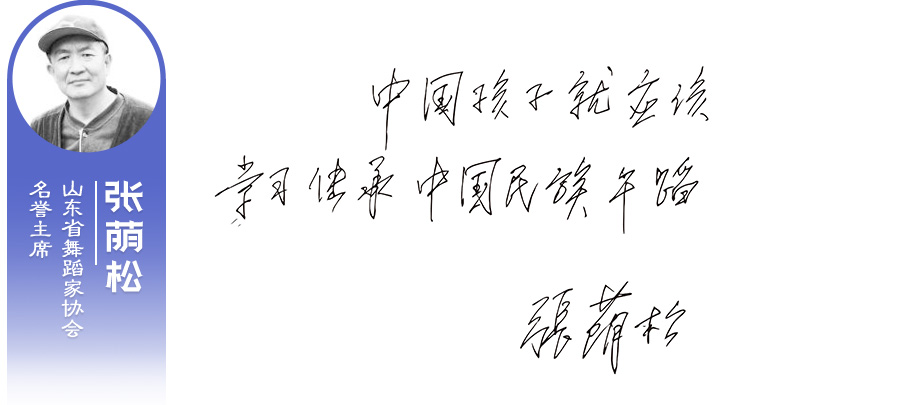 张萌松
山东省舞蹈家协会
名誉主席
中国孩子就应该
学习传承中国民族午蹈
張萌松